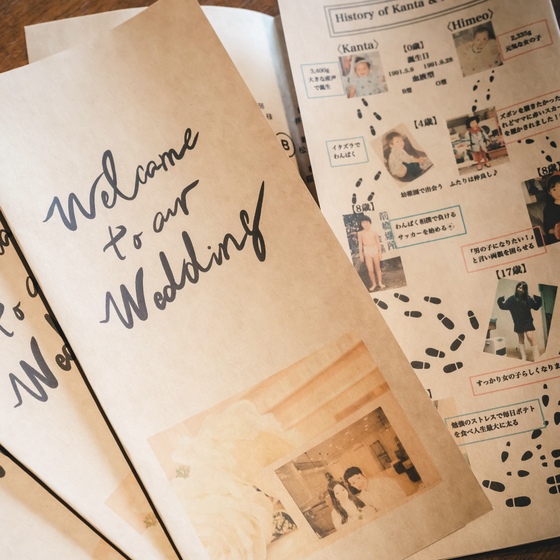 Welcome
to our
Wedding
History of Kanta &
〈Kanta〉
〈Himeo〉
【0歳】
誕生日
1991.5.9
1991.8.28
血液型
B型
O型
大きな産声
で誕生
2,235g
元気な女の子
【4歳】
イタズラで
わんぱく
ズボンを履きたかった
幼稚園で出会う ふたりは仲良し♪
【8歳】
わんぱく相撲で負ける
サッカーを始める
「男の子になりたい！」
と言い両親を困らせる
【17歳】
すっかり女の子らしくなりま
勉強のストレスで毎日ポテト
を食べ人生最大に太る
B
to
Wed